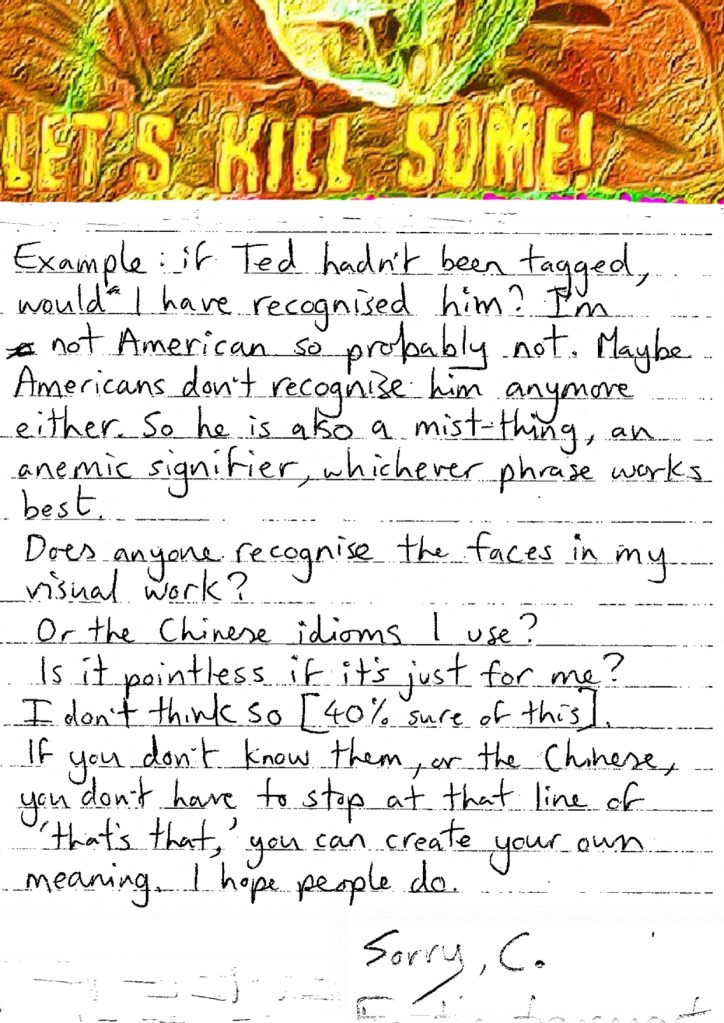 LET'S KILL SOME!
Example: if Ted hadn't been tagged,
would I have recognised him? I'm
not American so probably not. Maybe
Americans don't recognize him anymore
either. So he is also a mist-thing, an
anemic signifier, whichever phrase works
best.
Does anyone recognise the faces in my
visual work?
Or the Chinese idioms I use?
Is it pointless if it's just for me?
I don't think so [40% sure of this].
If you don't know them, or the Chinese,
you don't have to stop at that line of
'that's that,' you can create your own
meaning. I hope people do.
Sorry, C.